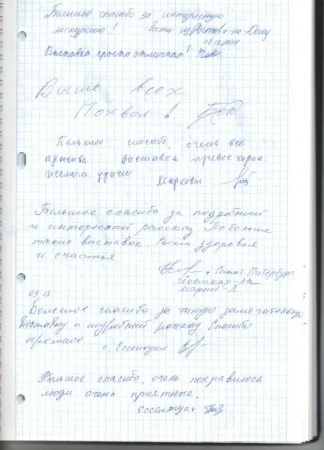 Большое спасибо за интересную
экскурсию! Гости из Ростова-на-Дону
Выставка просто отличная!
Выше всех
Похвал!
Большое спасибо, очень все
красиво, выставка превосходна.
желаем удачи
Большое спасибо за подробный
и интересный рассказ. Побольше
таких выставок. Всем здоровья
и счастья
г. Санкт-Петербург
Йошкар-Ола
09.13
Большое спасибо за такую замечательную
выставку и подробный рассказ. Спасибо
огромное г. Ессентуки
Большое спасибо, очень понравилось
люди очень приятные.
Ессентуки